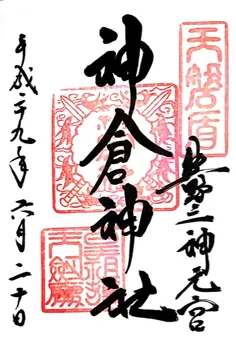 熊野三神元宮
神倉神社
平成二十九年六月二十日
天磐盾